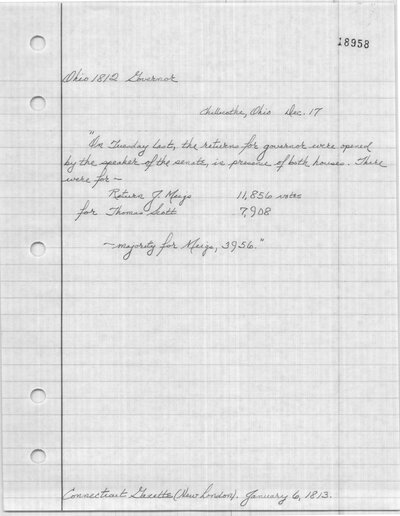 18958
Ohio 1812 Governor
Chillicothe, Ohio Dec. 17
"On Tuesday last, the returns for governor were opened
by the speaker of the senate, in presence of both houses. There
were for —
Return J. Meigs 11,856 votes
for Thomas Scott 7,908
— majority for Meigs, 3956."
Connecticut Gazette (New London). January 6, 1813.